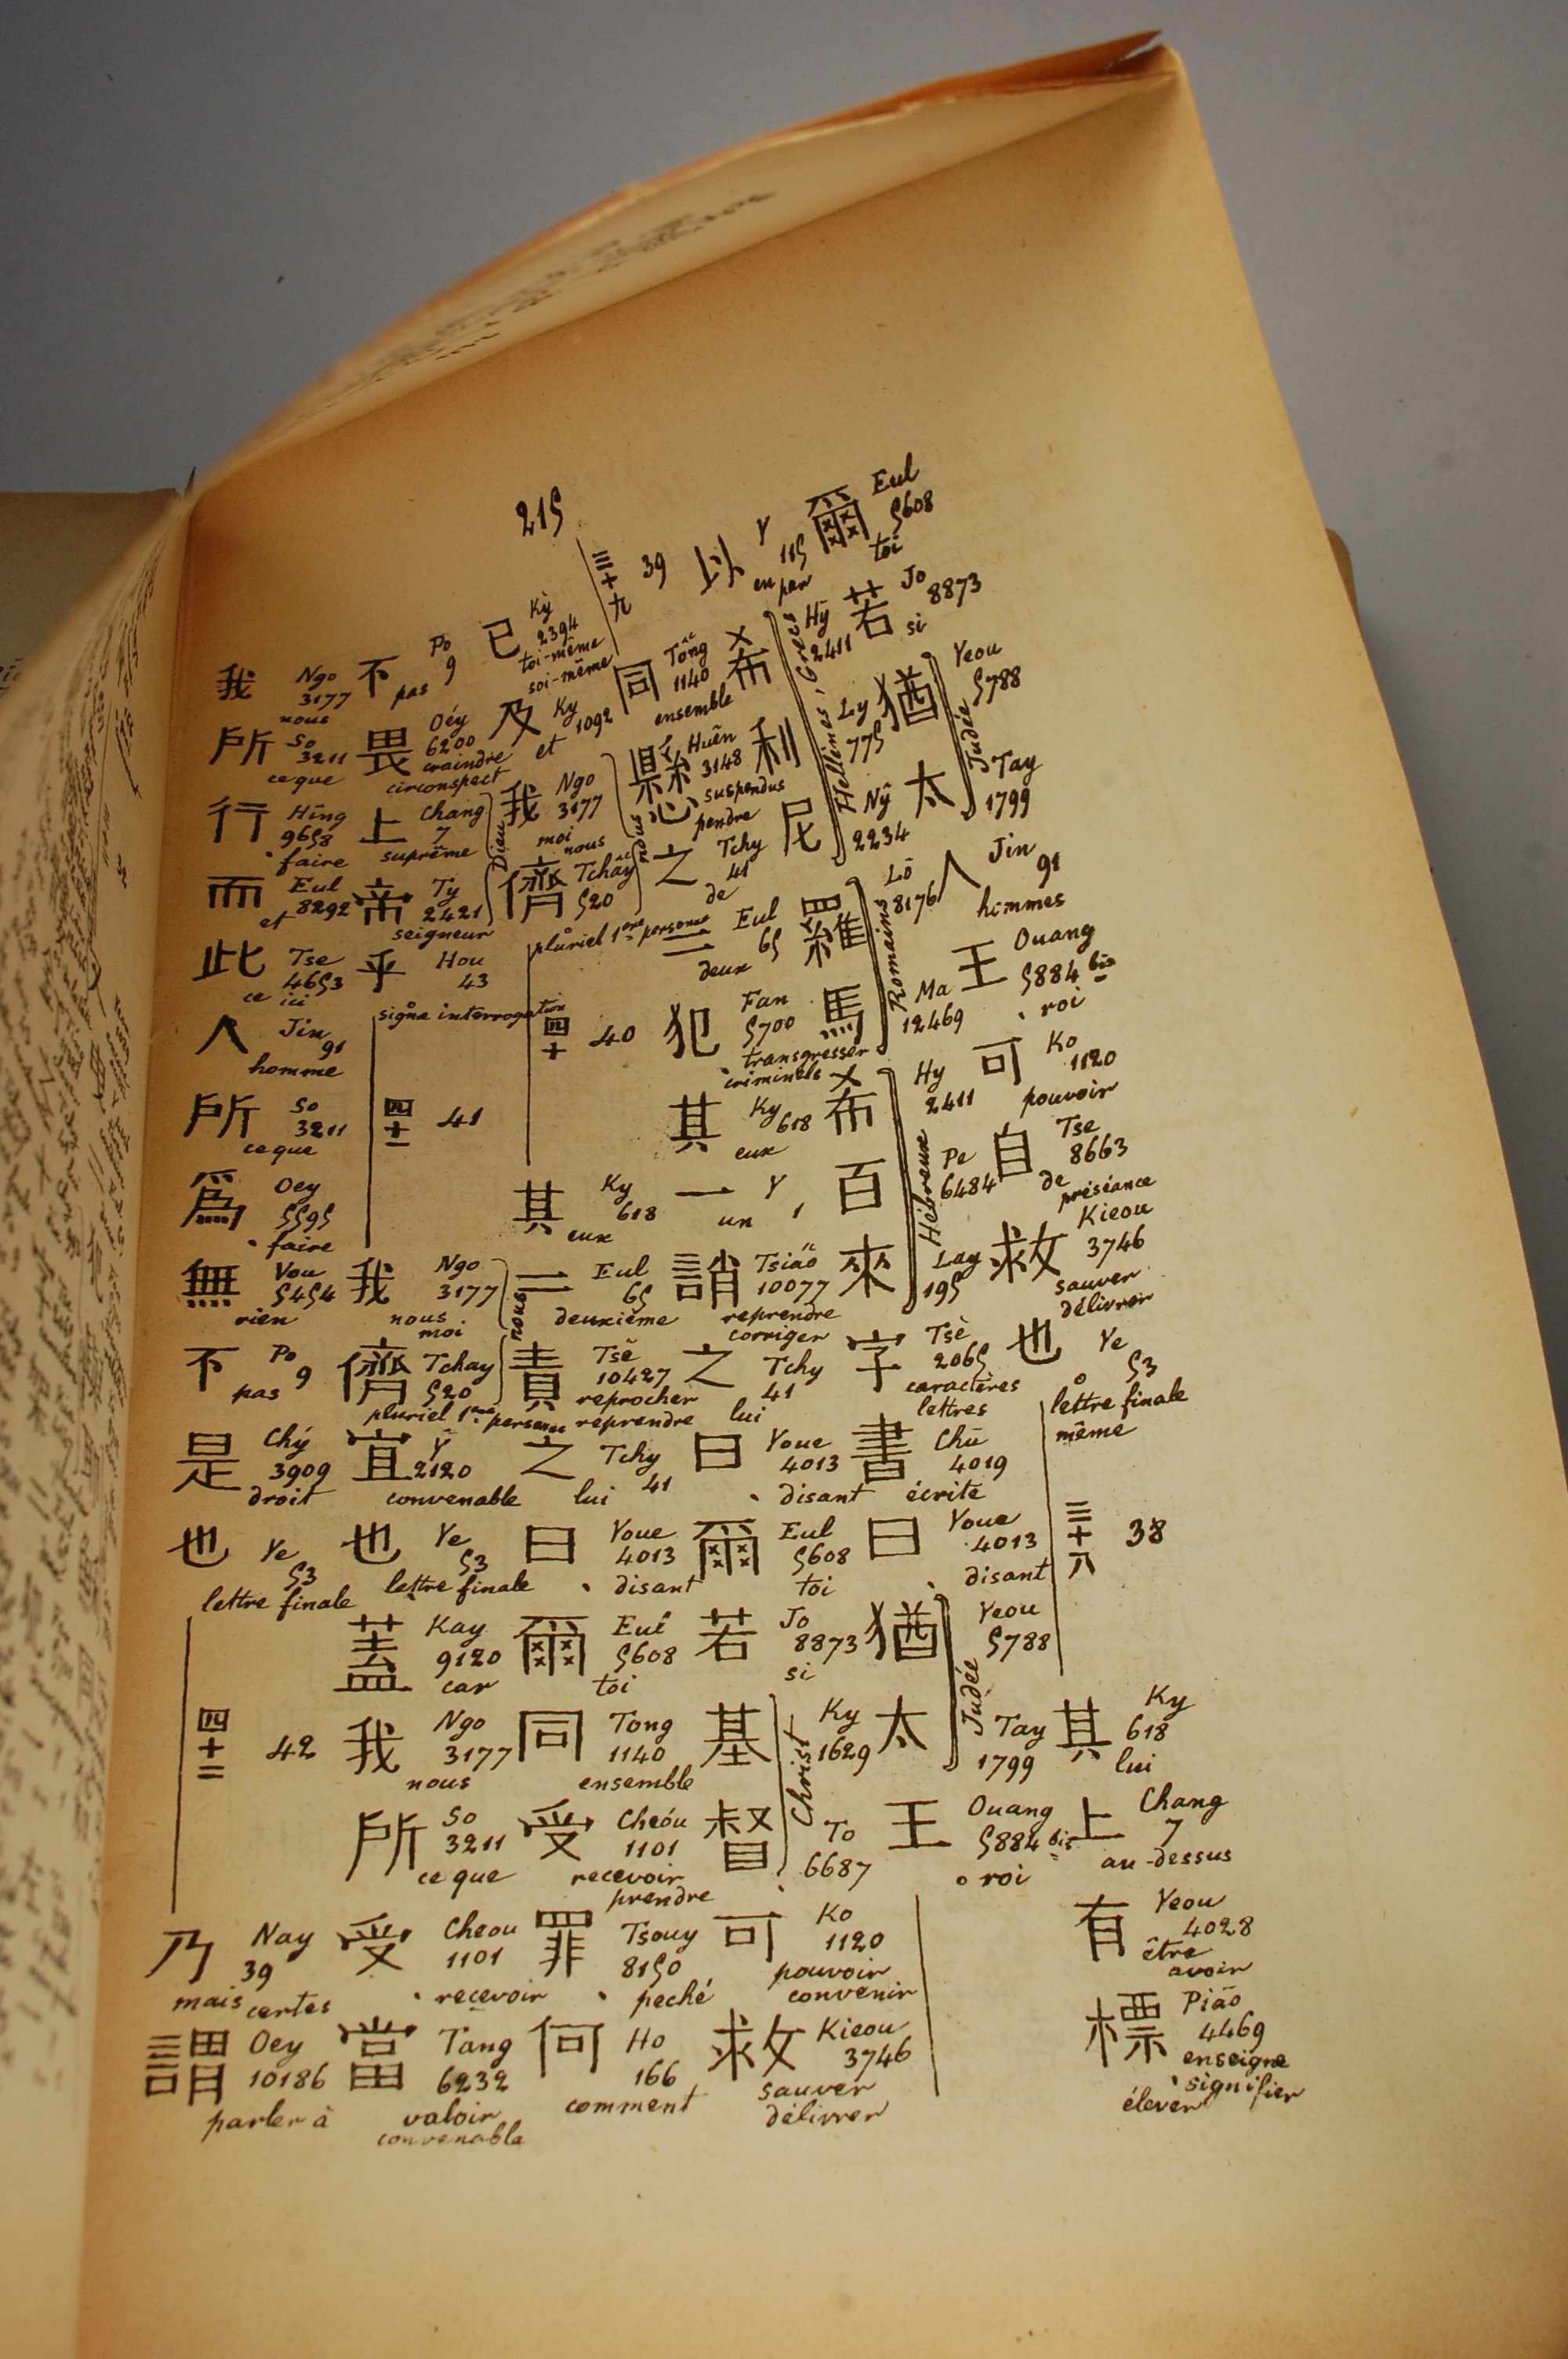 215
爾 Eul 5608 toi
若 Jo 8873 si
猶 Yeou 5788
太 Tay 1799
Judée
人 Jin 91 himmes
王 Ouang 5884 bis roi
可 Ko 1120 pouvoir
自 Tse 8663 de préséance
救 Kieou 3746 sauver délivrer
也 Ye 53 lettre finale même
三十八 38
其 Ky 618 lui
上 Chang 7 au-dessus
有 Yeou 4028 être avoir
標 Piāo 4469 enseigne signifier élever
以 Y 115 en par
希 Hȳ 2411
利 Ly 775
尼 Nȳ 2234
Hellènes, Grecs
羅 Lô 8176
馬 Ma 12469
Romains
希 Hy 2411
百 Pe 6484
來 Lay 195
Hébreux
字 Tsè 2065 caractères lettres
書 Chū 4019 écrite
曰 Youe 4013 disant
猶 Yeou 5788
太 Tay 1799
Judée
王 Ouang 5884 bis roi
三十九 39
同 Tông 1140 ensemble
懸 Huên 3148 suspendus pendre
之 Tchy 41 de
二 Eul 65 deux
犯 Fan 5700 transgresser criminels
其 Ky 618 eux
一 Y 1 un
誚 Tsiăo 10077 reprendre corriger
之 Tchy 41 lui
曰 Youe 4013 disant
爾 Eul 5608 toi
若 Jo 8873 si
基 Ky 1629
督 To 6687
Christ
可 Ko 1120 pouvoir convenir
救 Kieou 3746 sauver délivrer
己 Kỳ 2394 toi-même soi-même
及 Ky 1092 et
我 Ngo 3177 moi nous
儕 Tchây 520 pluriel 1ère personne
nous
四十 40
其 Ky 618 eux
二 Eul 65 deuxième
責 Tsĕ 10427 reprocher reprendre
之 Tchy 41 lui
曰 Youe 4013 disant
爾 Eul 5608 toi
同 Tong 1140 ensemble
受 Cheóu 1101 recevoir prendre
罪 Tsouy 8150 peché
何 Ho 166 comment
不 Po 9 pas
畏 Oéy 6200 craindre circonspect
上 Chang 7 suprême
帝 Ty 2421 seigneur
Dieu
乎 Hou 43 signe interrogation
四十一 41
我 Ngo 3177 nous moi
儕 Tchay 520 pluriel 1ère personne
nous
宜 Ȳ 2120 convenable
也 Ye 53 lettre finale
蓋 Kay 9120 car
我 Ngo 3177 nous
所 So 3211 ce que
受 Cheou 1101 recevoir
當 Tang 6232 valoir convenable
我 Ngo 3177 nous
所 So 3211 ce que
行 Hīng 9658 faire
而 Eul 8292 et
此 Tse 4653 ce ici
人 Jin 91 homme
所 So 3211 ce que
爲 Oey 5595 faire
無 Vou 5454 rien
不 Po 9 pas
是 Chý 3909 droit
也 Ye 53 lettre finale
四十二 42
乃 Nay 39 mais certes
謂 Oey 10186 parler à